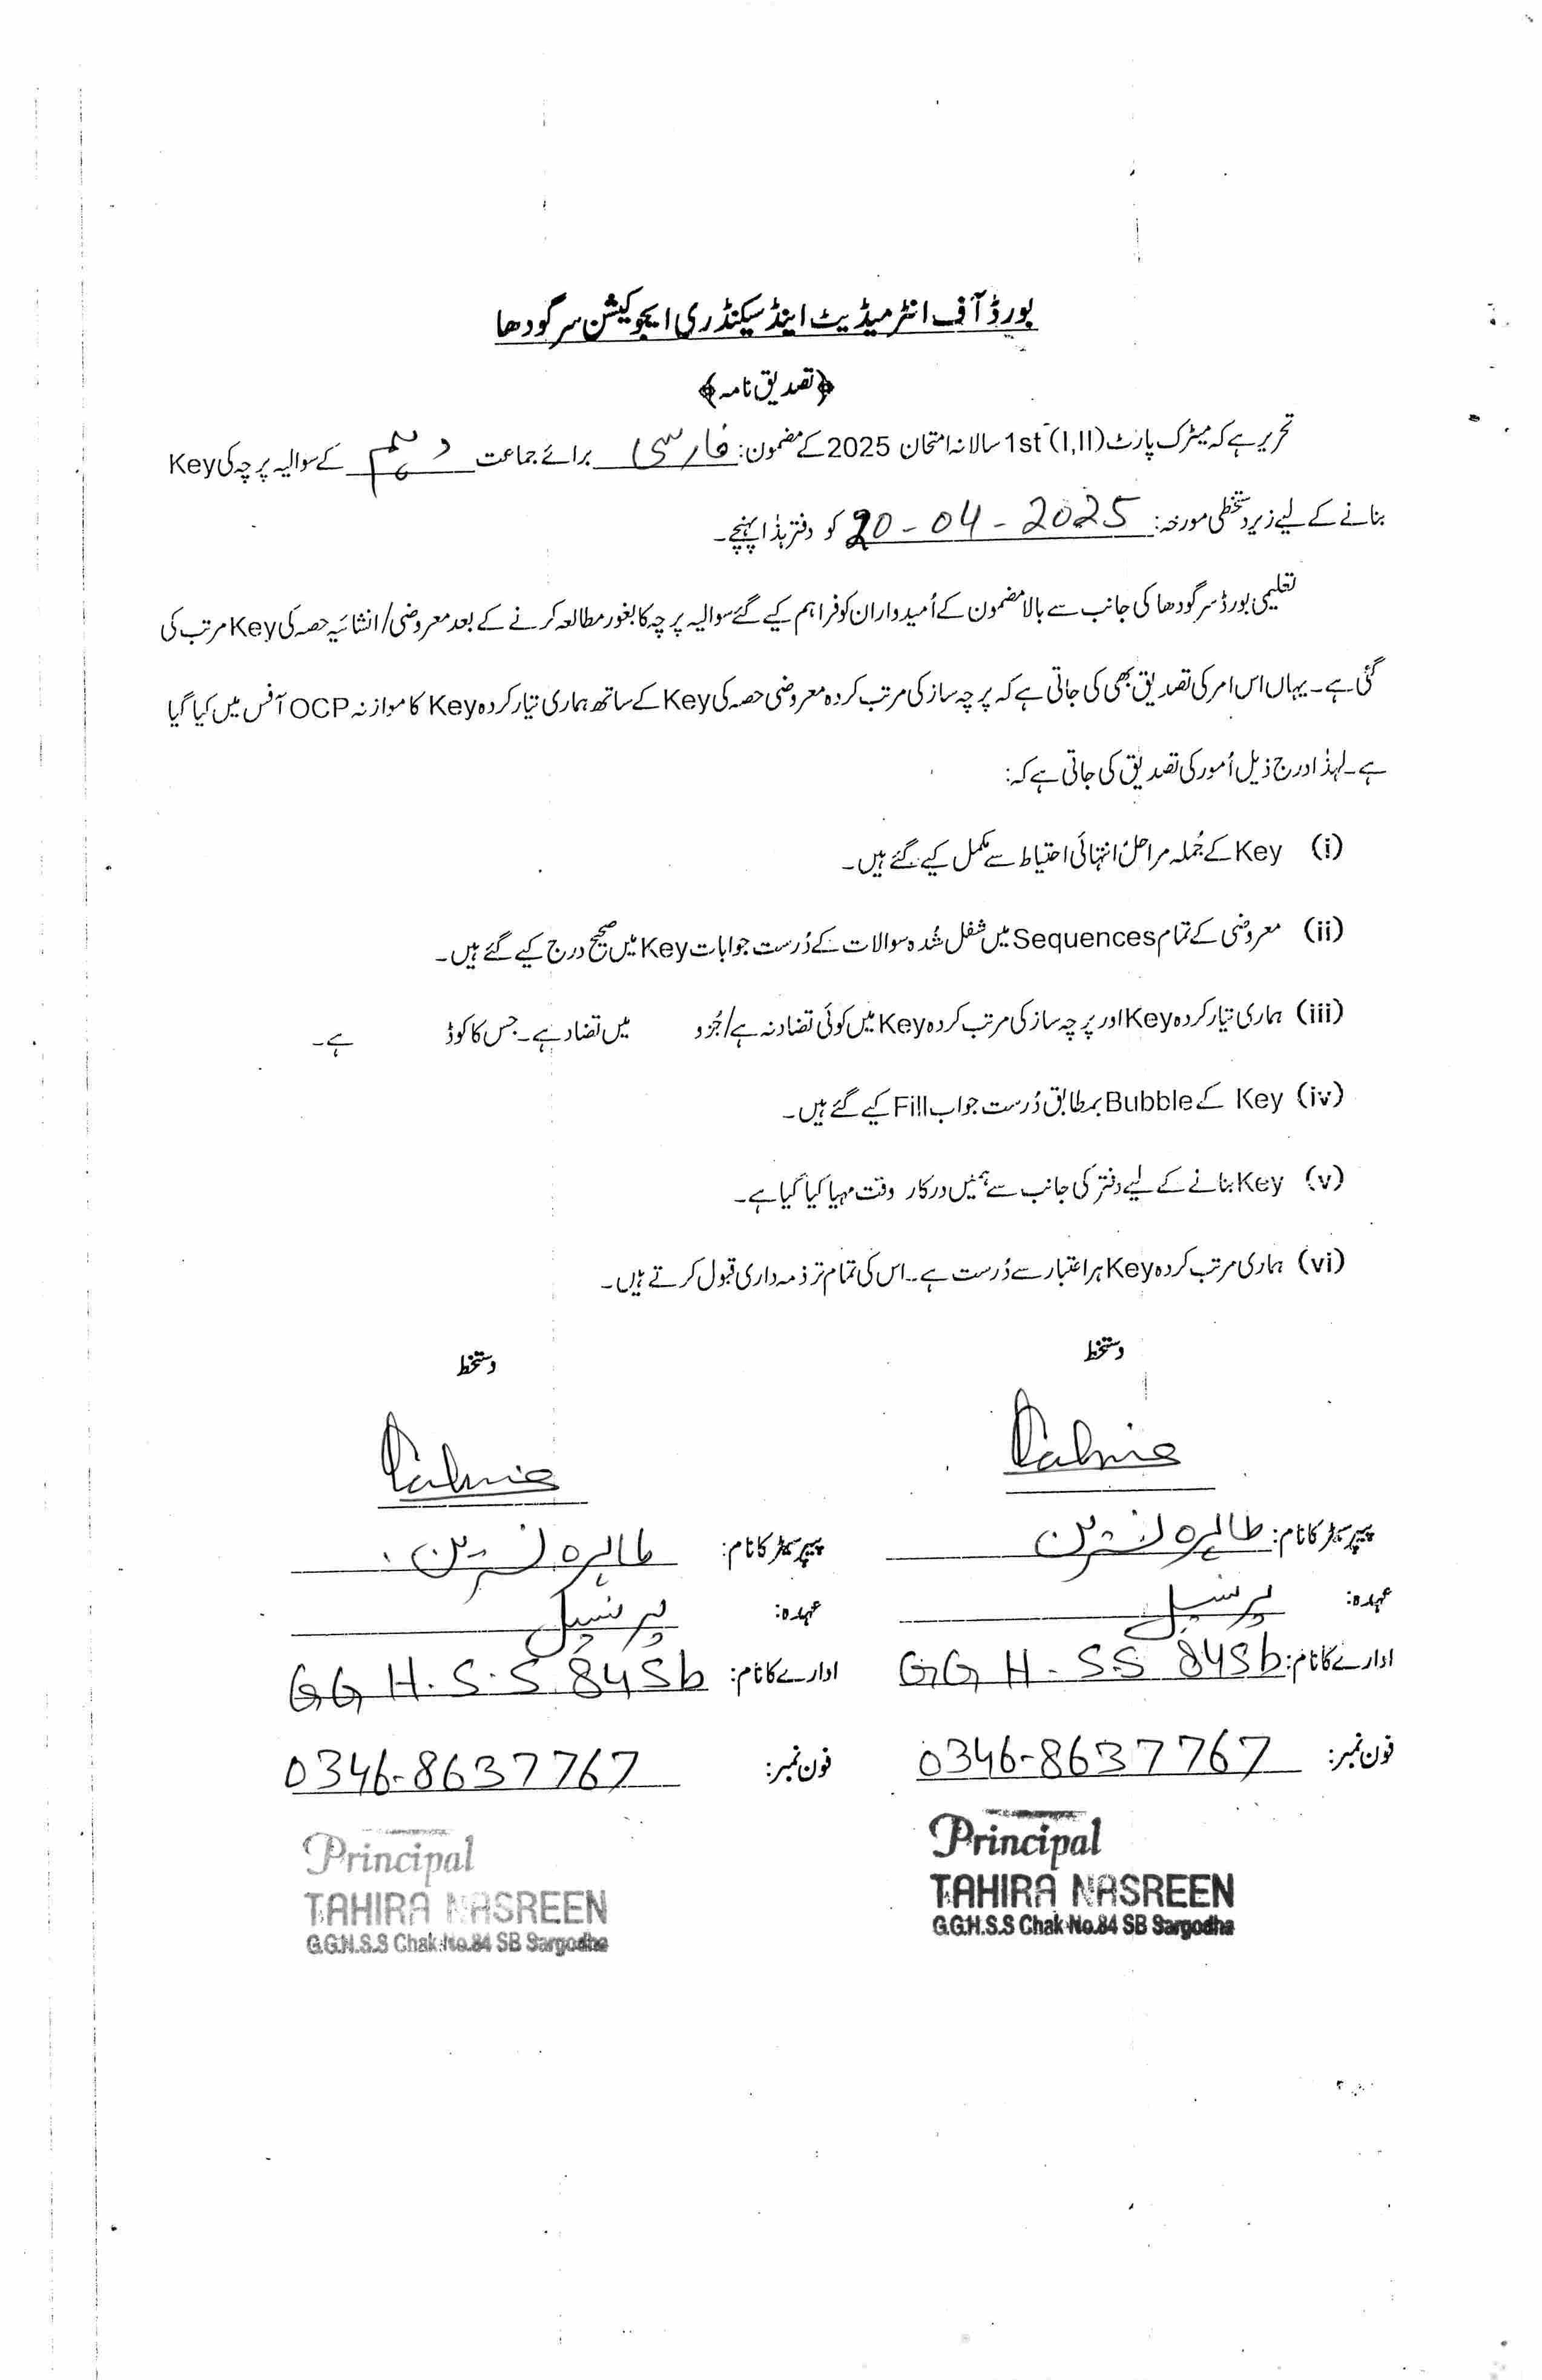 بورڈ آف انٹرمیڈیٹ اینڈ سیکنڈری ایجوکیشن سرگودھا
﴿تصدیق نامہ﴾
تحریر ہے کہ میٹرک پارٹ (I,II) 1st سالانہ امتحان 2025 کے مضمون: فارسی برائے جماعت دہم کے سوالیہ پرچہ کی Key
بنانے کے لیے زیر دستخطی مورخہ: 20-04-2025 کو دفتر ہٰذا پہنچے۔
تعلیمی بورڈ سرگودھا کی جانب سے بالا مضمون کے اُمیدواران کو فراہم کیے گئے سوالیہ پرچہ کا بغور مطالعہ کرنے کے بعد معروضی/انشائیہ حصہ کی Key مرتب کی
گئی ہے۔ یہاں اس امر کی تصدیق بھی کی جاتی ہے کہ پرچہ ساز کی مرتب کردہ معروضی حصہ کی Key کے ساتھ ہماری تیار کردہ Key کا موازنہ OCP آفس میں کیا گیا
ہے۔ لہٰذا درج ذیل اُمور کی تصدیق کی جاتی ہے کہ:
(i) Key کے جُملہ مراحل انتہائی احتیاط سے مکمل کیے گئے ہیں۔
(ii) معروضی کے تمام Sequences میں شفل شُدہ سوالات کے دُرست جوابات Key میں صحیح درج کیے گئے ہیں۔
(iii) ہماری تیار کردہ Key اور پرچہ ساز کی مرتب کردہ Key میں کوئی تضاد نہ ہے/جُزو میں تضاد ہے۔ جس کا کوڈ ہے۔
(iv) Key کے Bubble بمطابق دُرست جواب Fill کیے گئے ہیں۔
(v) Key بنانے کے لیے دفتر کی جانب سے ہمیں درکار وقت مہیا کیا گیا ہے۔
(vi) ہماری مرتب کردہ Key ہر اعتبار سے دُرست ہے۔ اس کی تمام تر ذمہ داری قبول کرتے ہیں۔
دستخط دستخط
پیپر سیٹر کا نام: طاہرہ نسرین پیپر سیٹر کا نام: طاہرہ نسرین
عہدہ: پرنسپل عہدہ: پرنسپل
ادارے کا نام: GG H.S.S 84Sb ادارے کا نام: GG H.S.S 84Sb
فون نمبر: 0346-8637767 فون نمبر: 0346-8637767
Principal Principal
TAHIRA NASREEN TAHIRA NASREEN
G.G.H.S.S Chak No.84 SB Sargodha G.G.H.S.S Chak No.84 SB Sargodha